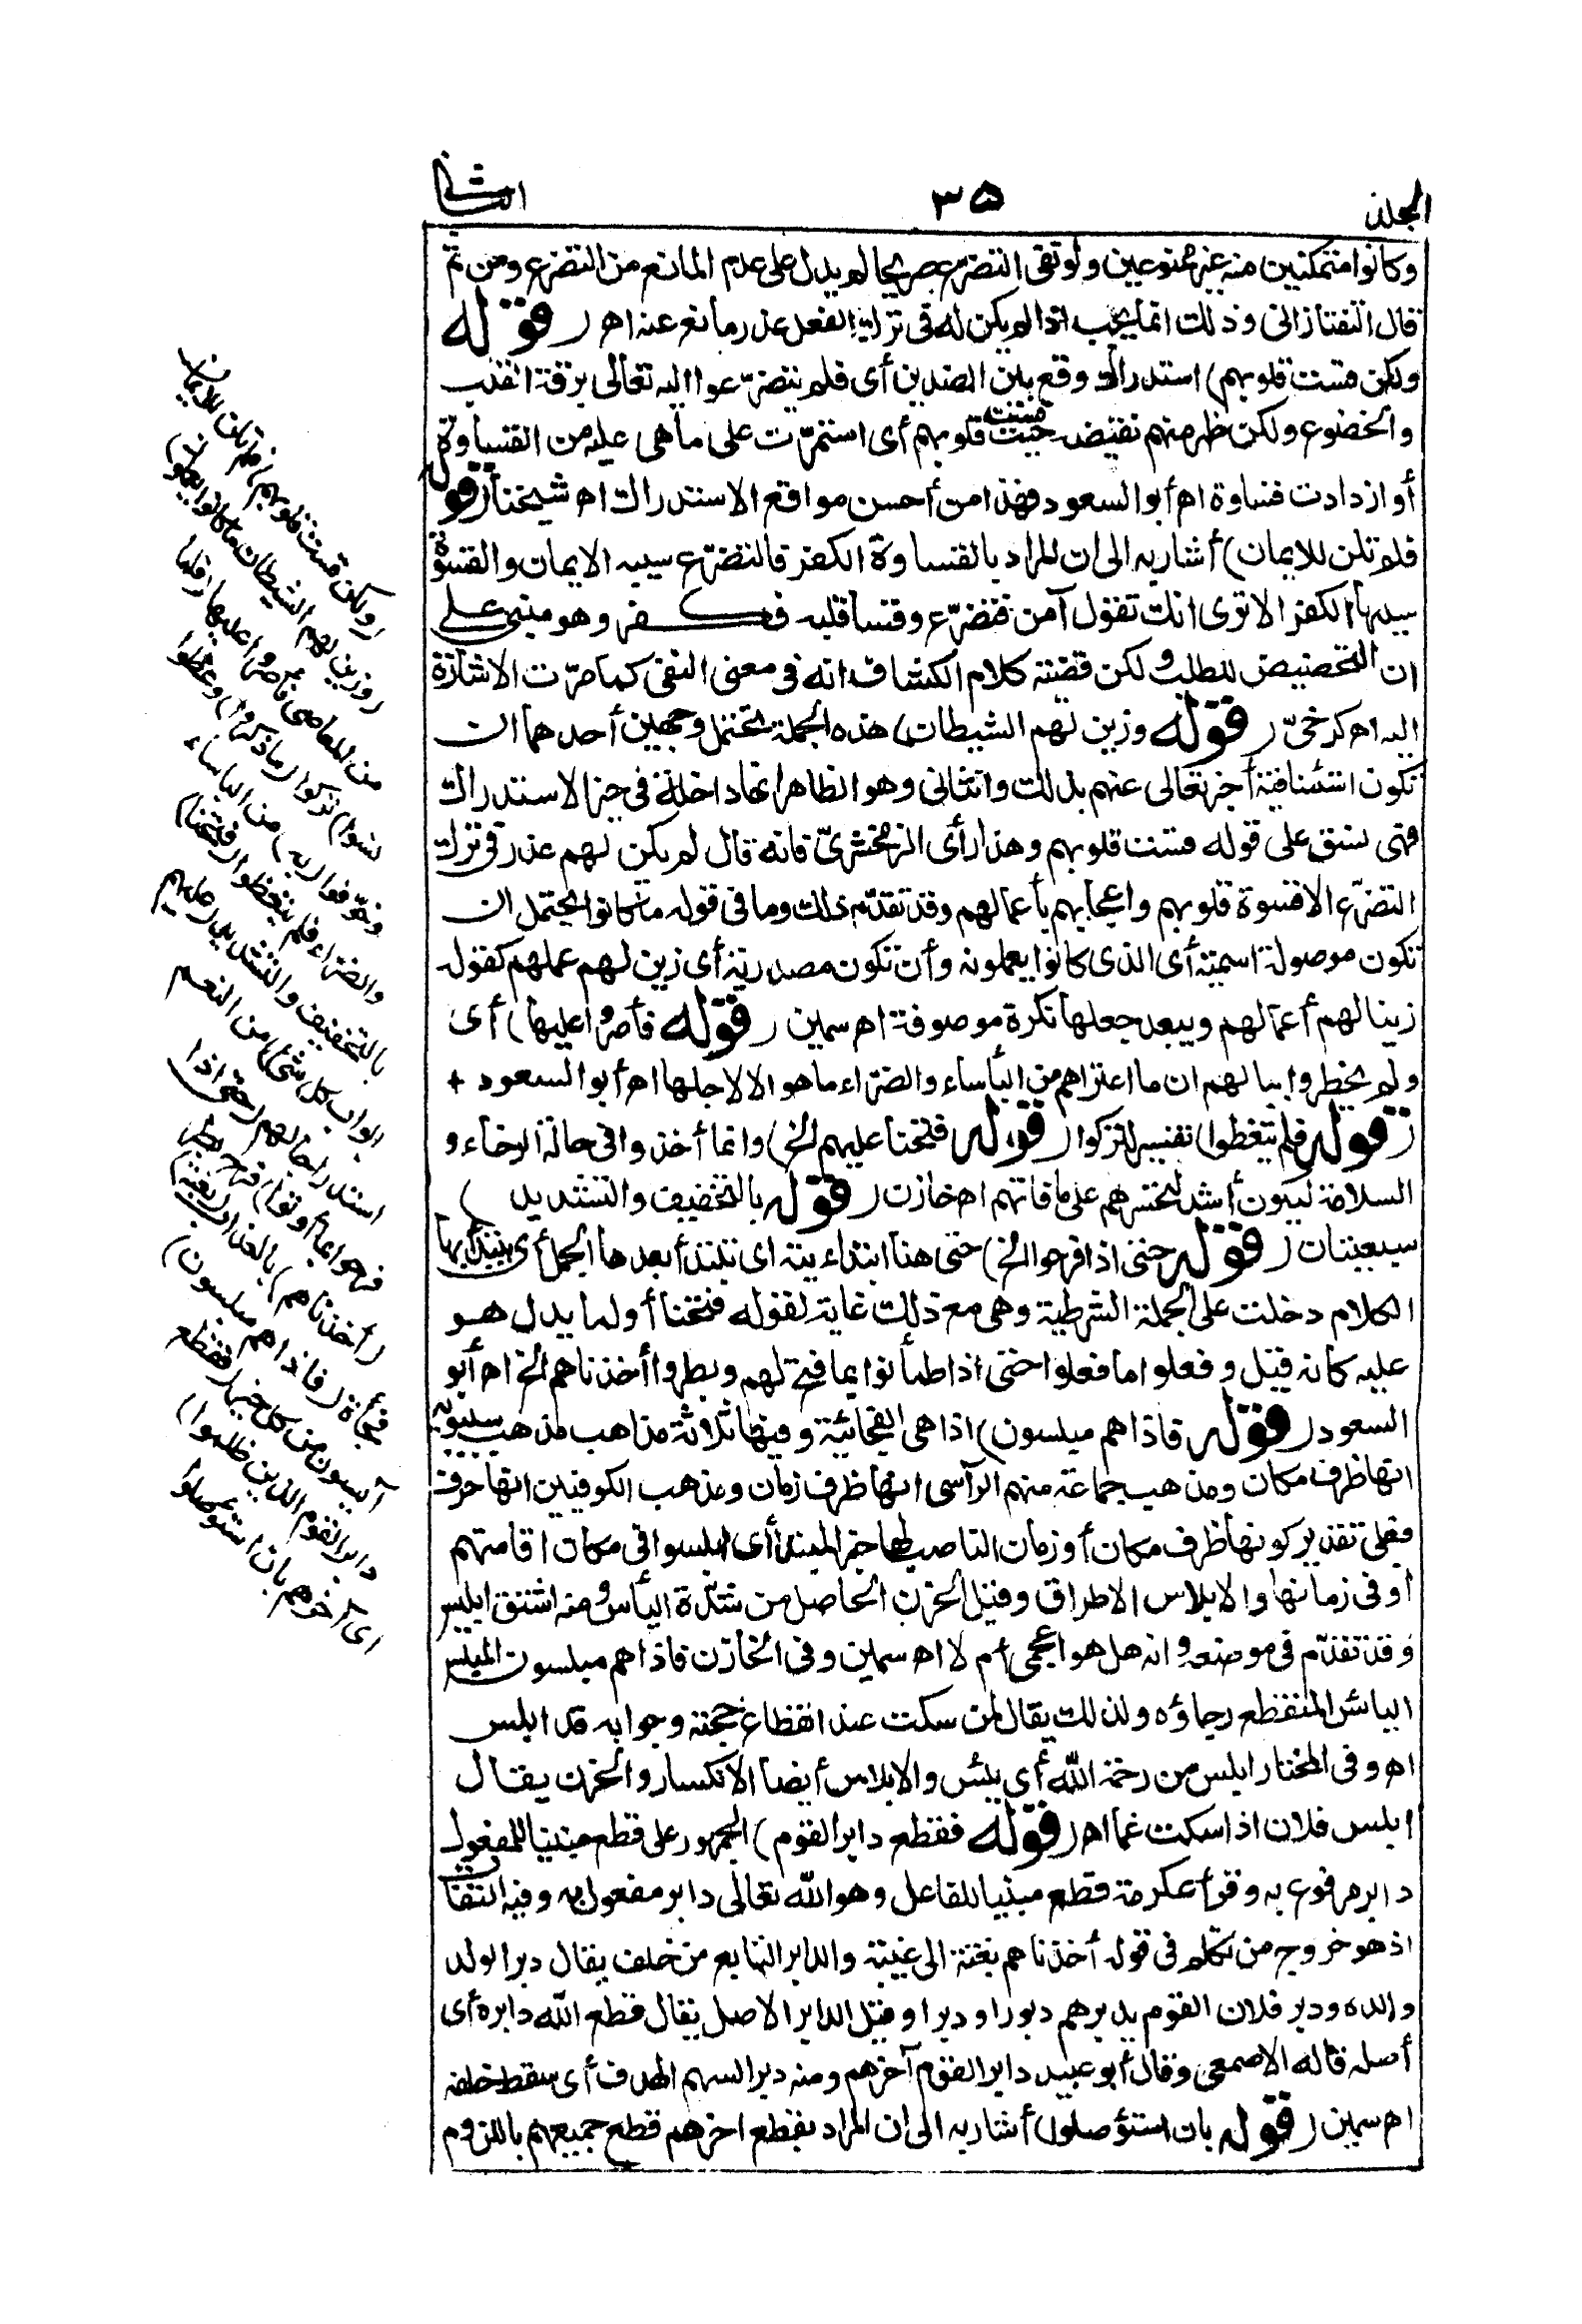 المجلد ٣٥ الثاني
وكانوا متمكنين منه غير ممنوعين ولو نفى التضرع صريحا لم يدل على عدم المانع من التضرع ومن ثم
قال التفتازانى وذلك انما يجب اذا لم يكن له فى ترك الفعل عذر مانع عنه اه (قوله
ولكن قست قلوبهم) استدراك وقع بين الضدين أى فلم يتضرعوا اليه تعالى برقة القلب
والخضوع ولكن ظهر منهم نقيضه حيث قست قلوبهم أى استمرت على ما هى عليه من القساوة
أو ازدادت قساوة اه أبو السعود فهذا من أحسن مواقع الاستدراك اه شيخنا (قوله
فلم تلن للايمان) أشار به الى ان المراد بالقساوة الكفر فالتضرع سببه الايمان والقسوة
سببها الكفر الا ترى انك تقول آمن فتضرع وقسا قلبه فكفر وهو مبنى على
ان التحضيض للطلب ولكن قضية كلام الكشاف انه فى معنى النفى كما مرت الاشارة
اليه اه كرخىّ (قوله وزين لهم الشيطان) هذه الجملة تحتمل وجهين أحدهما ان
تكون استئنافية أخبر تعالى عنهم بذلك والثانى وهو الظاهر انها داخلة فى حيز الاستدراك
فهى نسق على قوله قست قلوبهم وهذا رأى الزمخشرىّ فانه قال لم يكن لهم عذر فى ترك
التضرع الا قسوة قلوبهم واعجابهم بأعمالهم وقد تقدّم ذلك وما فى قوله ما كانوا يحتمل ان
تكون موصولة اسمية أى الذى كانوا يعملونه وأن تكون مصدرية أى زين لهم عملهم كقوله
زينا لهم أعمالهم ويبعد جعلها نكرة موصوفة اه سمين (قوله فأصروا عليها) أى
ولم يخطروا ببالهم ان ما اعتراهم من البأساء والضراء ما هو الا لاجلها اه أبو السعود +
(قوله فلم يتعظوا) تفسير لتركوا (قوله فتحنا عليهم الخ) وانما أخذوا فى حالة الرخاء و
السلامة ليكون أشد لتحسرهم على ما فاتهم اه خازن (قوله بالتخفيف والتشديد)
سبعيتان (قوله حتى اذا فرحوا الخ) حتى هنا ابتدائية اى تبتدأ بعدها الجمل أى يبتدأ بها
الكلام دخلت على الجملة الشرطية وهى مع ذلك غاية لقوله فتحنا أو لما يدل هو
عليه كانه قيل وفعلوا ما فعلوا حتى اذا اطمأنوا بما فتح لهم وبطروا أخذناهم الخ اه أبو
السعود (قوله فاذا هم مبلسون) اذا هى الفجائية وفيها ثلاثة مذاهب مذهب سيبويه
انها ظرف مكان ومذهب جماعة منهم الرآسى انها ظرف زمان ومذهب الكوفيين انها حرف
فعلى تقدير كونها ظرف مكان أو زمان الناصب لها خبر المبتدأ أى ابلسوا فى مكان اقامتهم
أو فى زمانها والابلاس الاطراق وقيل الحزن الحاصل من شدّة اليأس ومنه اشتق ابليس
وقد تقدّم فى موضعه وانه هل هو أعجمى أم لا اه سمين وفى الخازن فاذا هم مبلسون المبلس
اليائس المنقطع رجاؤه ولذلك يقال لمن سكت عند انقطاع حجته وجوابه قد ابلس
اه وفى المختار ابلس من رحمة الله أى يئس والابلاس أيضا الانكسار والحزن يقال
ابلس فلان اذا سكت غما اه (قوله فقطع دابر القوم) الجمهور على قطع مبنيا للمفعول
دابر مرفوع به وقرأ عكرمة قطع مبنيا للفاعل وهو الله تعالى دابر مفعول به وفيه التفات
اذ هو خروج من تكلم فى قوله أخذناهم بغتة الى غيبة والدابر التابع من خلف يقال دبر الولد
والده ودبر فلان القوم يدبرهم دبورا ودبرا وقيل الدابر الاصل يقال قطع الله دابره أى
أصله قاله الاصمعى وقال أبو عبيد دابر القوم آخرهم ومنه دبر السهم الهدف أى سقط خلفه
اه سمين (قوله بان استؤصلوا) أشار به الى ان المراد بقطع اخرهم قطع جميعهم باللزوم
(ولكن قست قلوبهم) فلم تلن للايمان
(وزين لهم الشيطان ما كانوا يعملون)
من المعاصى فأصروا عليها (فلما
نسوا) تركوا (ما ذكروا) وعظوا
وخوّفوا (به) من البأساء
والضراء فلم يتعظوا (فتحنا)
بالتخفيف والتشديد (عليهم
ابواب كل شئ) من النعم
استدراجا لهم (حتى اذا
فرحوا بما أوتوا) فرح بطر
(أخذناهم) بالعذاب (بغتة)
فجأة (فاذا هم مبلسون)
آيسون من كل خير (فقطع
دابر القوم الذين ظلموا)
اى آخرهم بان استؤصلوا